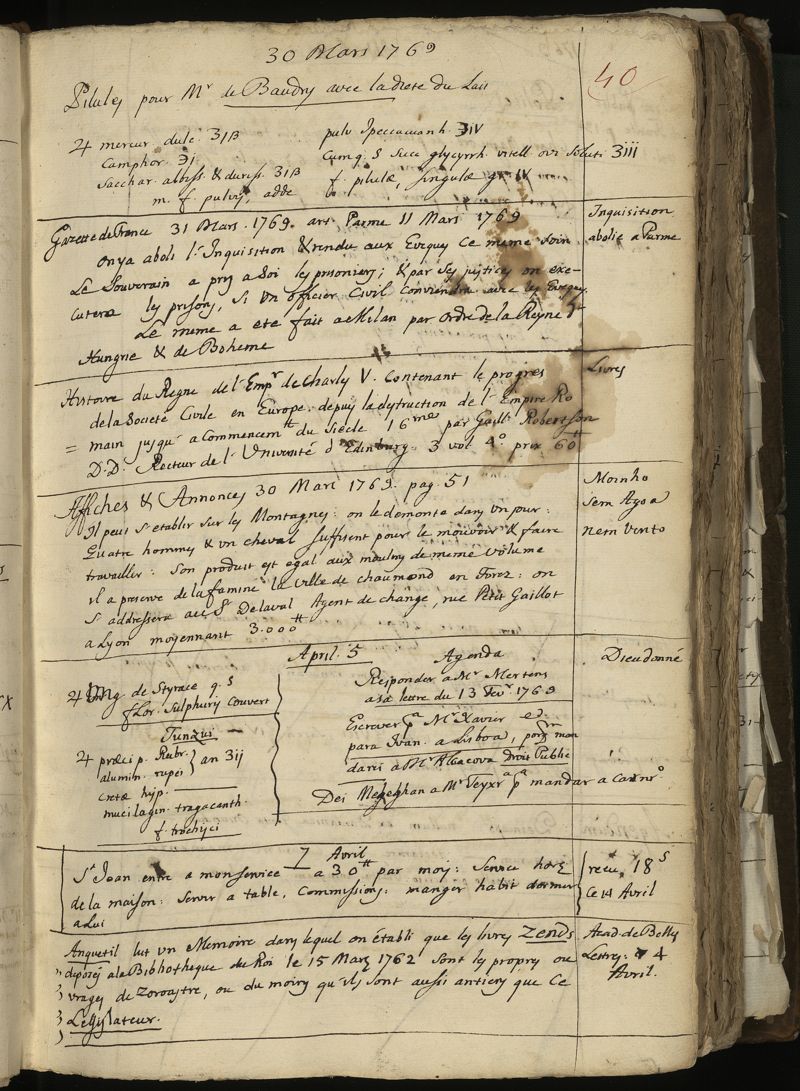 30 Mars 1769
40
Pilules pour Mr de Baudry avec la diete du Lait
♃ mercur dulc. ʒiβ
Camphor. ℈j
Sacchar. albiss. & duriss. ʒiβ
m. f. pulvis, adde
pulv Ipeccawanh. ʒiV
Cumq. s succ glycyrrh. vitell ovi soluti ʒiii
f. pilulæ, singulæ gr. IV
Gazette de France 31 Mars. 1769. art Parme 11 Mars 1769
on y a aboli l'Inquisition & rendu aux Evques ce meme soin
Le Souverain a pris a Soi les prisoniers; & par ses justices on exe-
cutera les prisons, si un officier Civil Conviendra avec les Evques.
Le meme a eté fait a Milan par ordre de la Reyne d
Hungrie & de Boheme
Inquisition
abolie a Parme
Histoire du Regne de l'Empr de Charles V. Contenant le progres
de la Societé Civile en Europe, depuis la destruction de l'Empire Ro
= main jusqu'a Commencemt du Siecle 16me par Guill. Robertson
D.D. Recteur de l'Université d'Edinburg. 3 vol 4o prix 60tt
Livres
Affiches & Annonces 30 Mars 1769. pag. 51
Il peut s'etablir sur les Montagnes: on le demonte dans un jour:
Quatre hommes & un cheval suffisent pour le mouvoir & faire
travailler: Son produit est egal aux moulins de meme volume
il a preservé de la famine la ville de chaumond en Forez: on
s'addressera au Sr Delaval Agent de change, rue Petit Gaillot
a Lyon moyennant 3.000tt
Moinho
sem Agoa
nem vento
April. 5
♃ Ung de Styrace q. s
flor. Sulphuris Couvert
Tunzui
♃ præcip. Rubr.
alumin. rupei } an ʒij
cretæ
mucilagin. tragacanth.
f. trochisci
Agenda
Responder a Mr Mertens
a sa lettre du 13 Fevr. 1769
Escrever pa Mr Xavier
para Ivan. a Lisboa, porq̃ man
darei a Mr Alacova Droit Public
Dei Megeghan a Mr Teyxra pa mandar a
Dieudonné
7 Avril
St Jean entre a mon service a 30tt par mois: Service hors
de la maison: Servir a table, Commissions; manger habit dormir
a Lui
recu 18s
Ce 14 Avril
Anquetil lut un Memoire dans lequel on établi que les livres Zends
deposés a la Bibliotheque du Roi le 15 Mars 1762 sont les propres ou
vrages de Zoroastre, ou du moins qu'ils sont aussi antiens que ce
Legislateur.
Acad. de Belles
Lettres. 4
Avril.